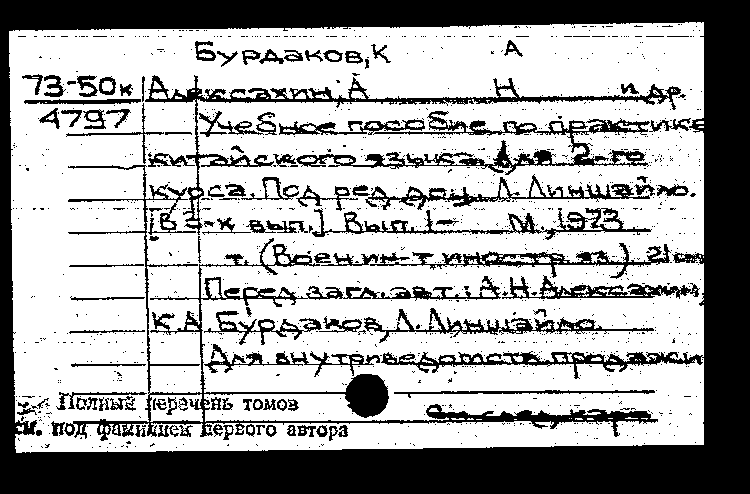 Бурдаков, К А
73-50к Алексахин, А Н и др.
4797 Учебное пособие по практике
китайского языка для 2-го
курса. Под ред. доц. Л. Линшайло.
[В 3-х вып.] Вып. 1- М., 1973
т. (Воен. ин-т иностр. яз.) 21 см
Перед загл. авт.: А.Н. Алексахин,
К.А. Бурдаков, Л. Линшайло.
Для внутриведомств. продажи
Полный перечень томов
См. след. карт
см. под фамилией первого автора